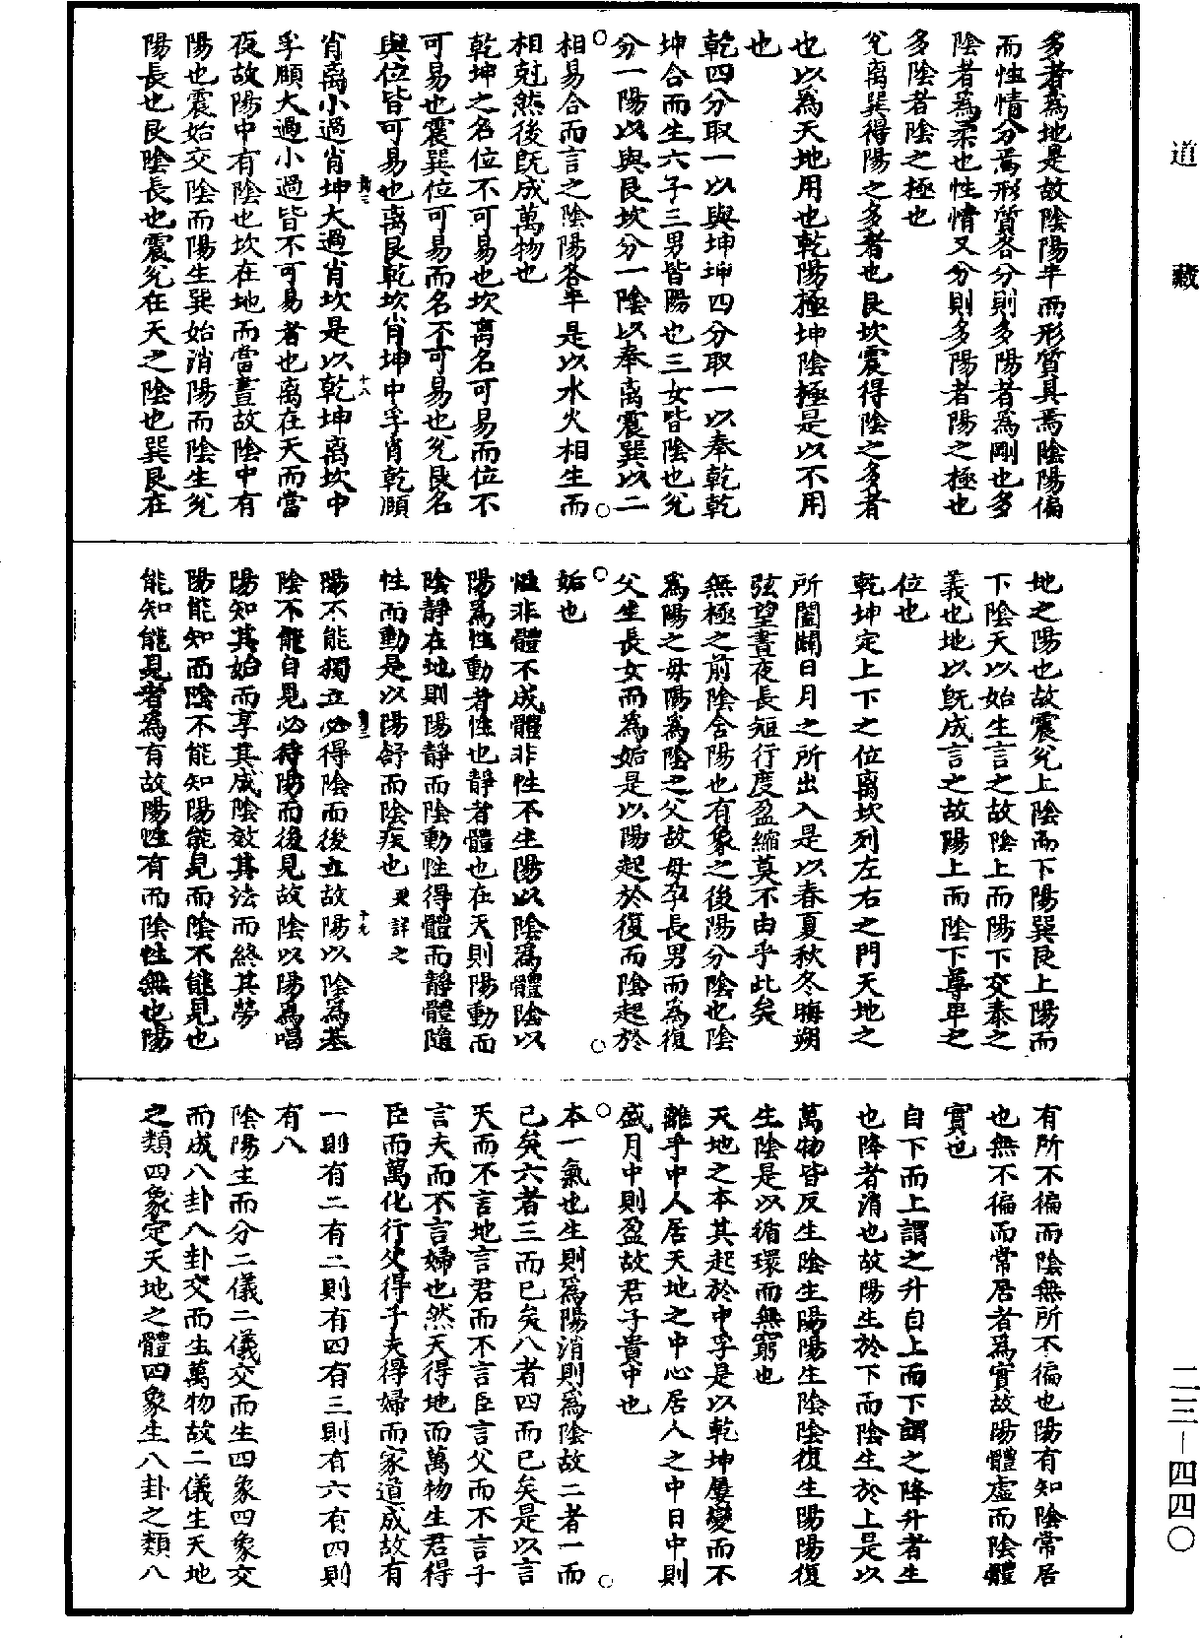 道藏
二三—四四〇
多者爲地是故陰陽半而形質具焉陰陽偏
而性情分焉形質各分則多陽者爲剛也多
陰者爲柔也性情又分則多陽者陽之極也
多陰者陰之極也
兊離巽得陽之多者也艮坎震得陰之多者
也以爲天地用也乾陽極坤陰極是以不用
也
乾四分取一以與坤坤四分取一以奉乾乾
坤合而生六子三男皆陽也三女皆陰也兊
分一陽以與艮坎分一陰以奉离震巽以二
相易合而言之陰陽各半是以水火相生而
相尅然後旣成萬物也
乾坤之名位不可易也坎离名可易而位不
可易也震巽位可易而名不可易也兊艮名
與位皆可易也离艮乾坎肖坤中孚肖乾頤
肖离小過肖坤大過肖坎是以乾坤离坎中
孚頤大過小過皆不可易者也离在天而當
夜故陽中有陰也坎在地而當晝故陰中有
陽也震始交陰而陽生巽始消陽而陰生兊
陽長也艮陰長也震兊在天之陰也巽艮在
地之陽也故震兊上陰而下陽巽艮上陽而
下陰天以始生言之故陰上而陽下交泰之
義也地以旣成言之故陽上而陰下尊卑之
位也
乾坤定上下之位离坎列左右之門天地之
所闔闢日月之所出入是以春夏秋冬晦朔
弦望晝夜長短行度盈縮莫不由乎此矣
無極之前陰含陽也有象之後陽分陰也陰
爲陽之母陽爲陰之父故母孕長男而爲復
父生長女而爲姤是以陽起於復而陰起於
姤也
性非體不成體非性不生陽以陰爲體陰以
陽爲性動者性也靜者體也在天則陽動而
陰靜在地則陽靜而陰動性得體而靜體隨
性而動是以陽舒而陰疾也 更詳之
陽不能獨立必得陰而後立故陽以陰爲基
陰不能自見必待陽而後見故陰以陽爲唱
陽知其始而享其成陰效其法而終其勞
陽能知而陰不能知陽能見而陰不能見也
能知能見者爲有故陽性有而陰性無也陽
有所不徧而陰無所不徧也陽有知陰常居
也無不徧而常居者爲實故陽體虛而陰體
實也
自下而上謂之升自上而下謂之降升者生
也降者消也故陽生於下而陰生於上是以
萬物皆反生陰生陽陽生陰陰復生陽陽復
生陰是以循環而無窮也
天地之本其起於中乎是以乾坤屢變而不
離乎中人居天地之中心居人之中日中則
盛月中則盈故君子貴中也
本一氣也生則爲陽消則爲陰故二者一而
已矣六者三而已矣八者四而已矣是以言
天而不言地言君而不言臣言父而不言子
言夫而不言婦也然天得地而萬物生君得
臣而萬化行父得子夫得婦而家道成故有
一則有二有二則有四有三則有六有四則
有八
陰陽生而分二儀二儀交而生四象四象交
而成八卦八卦交而生萬物故二儀生天地
之類四象定天地之體四象生八卦之類八